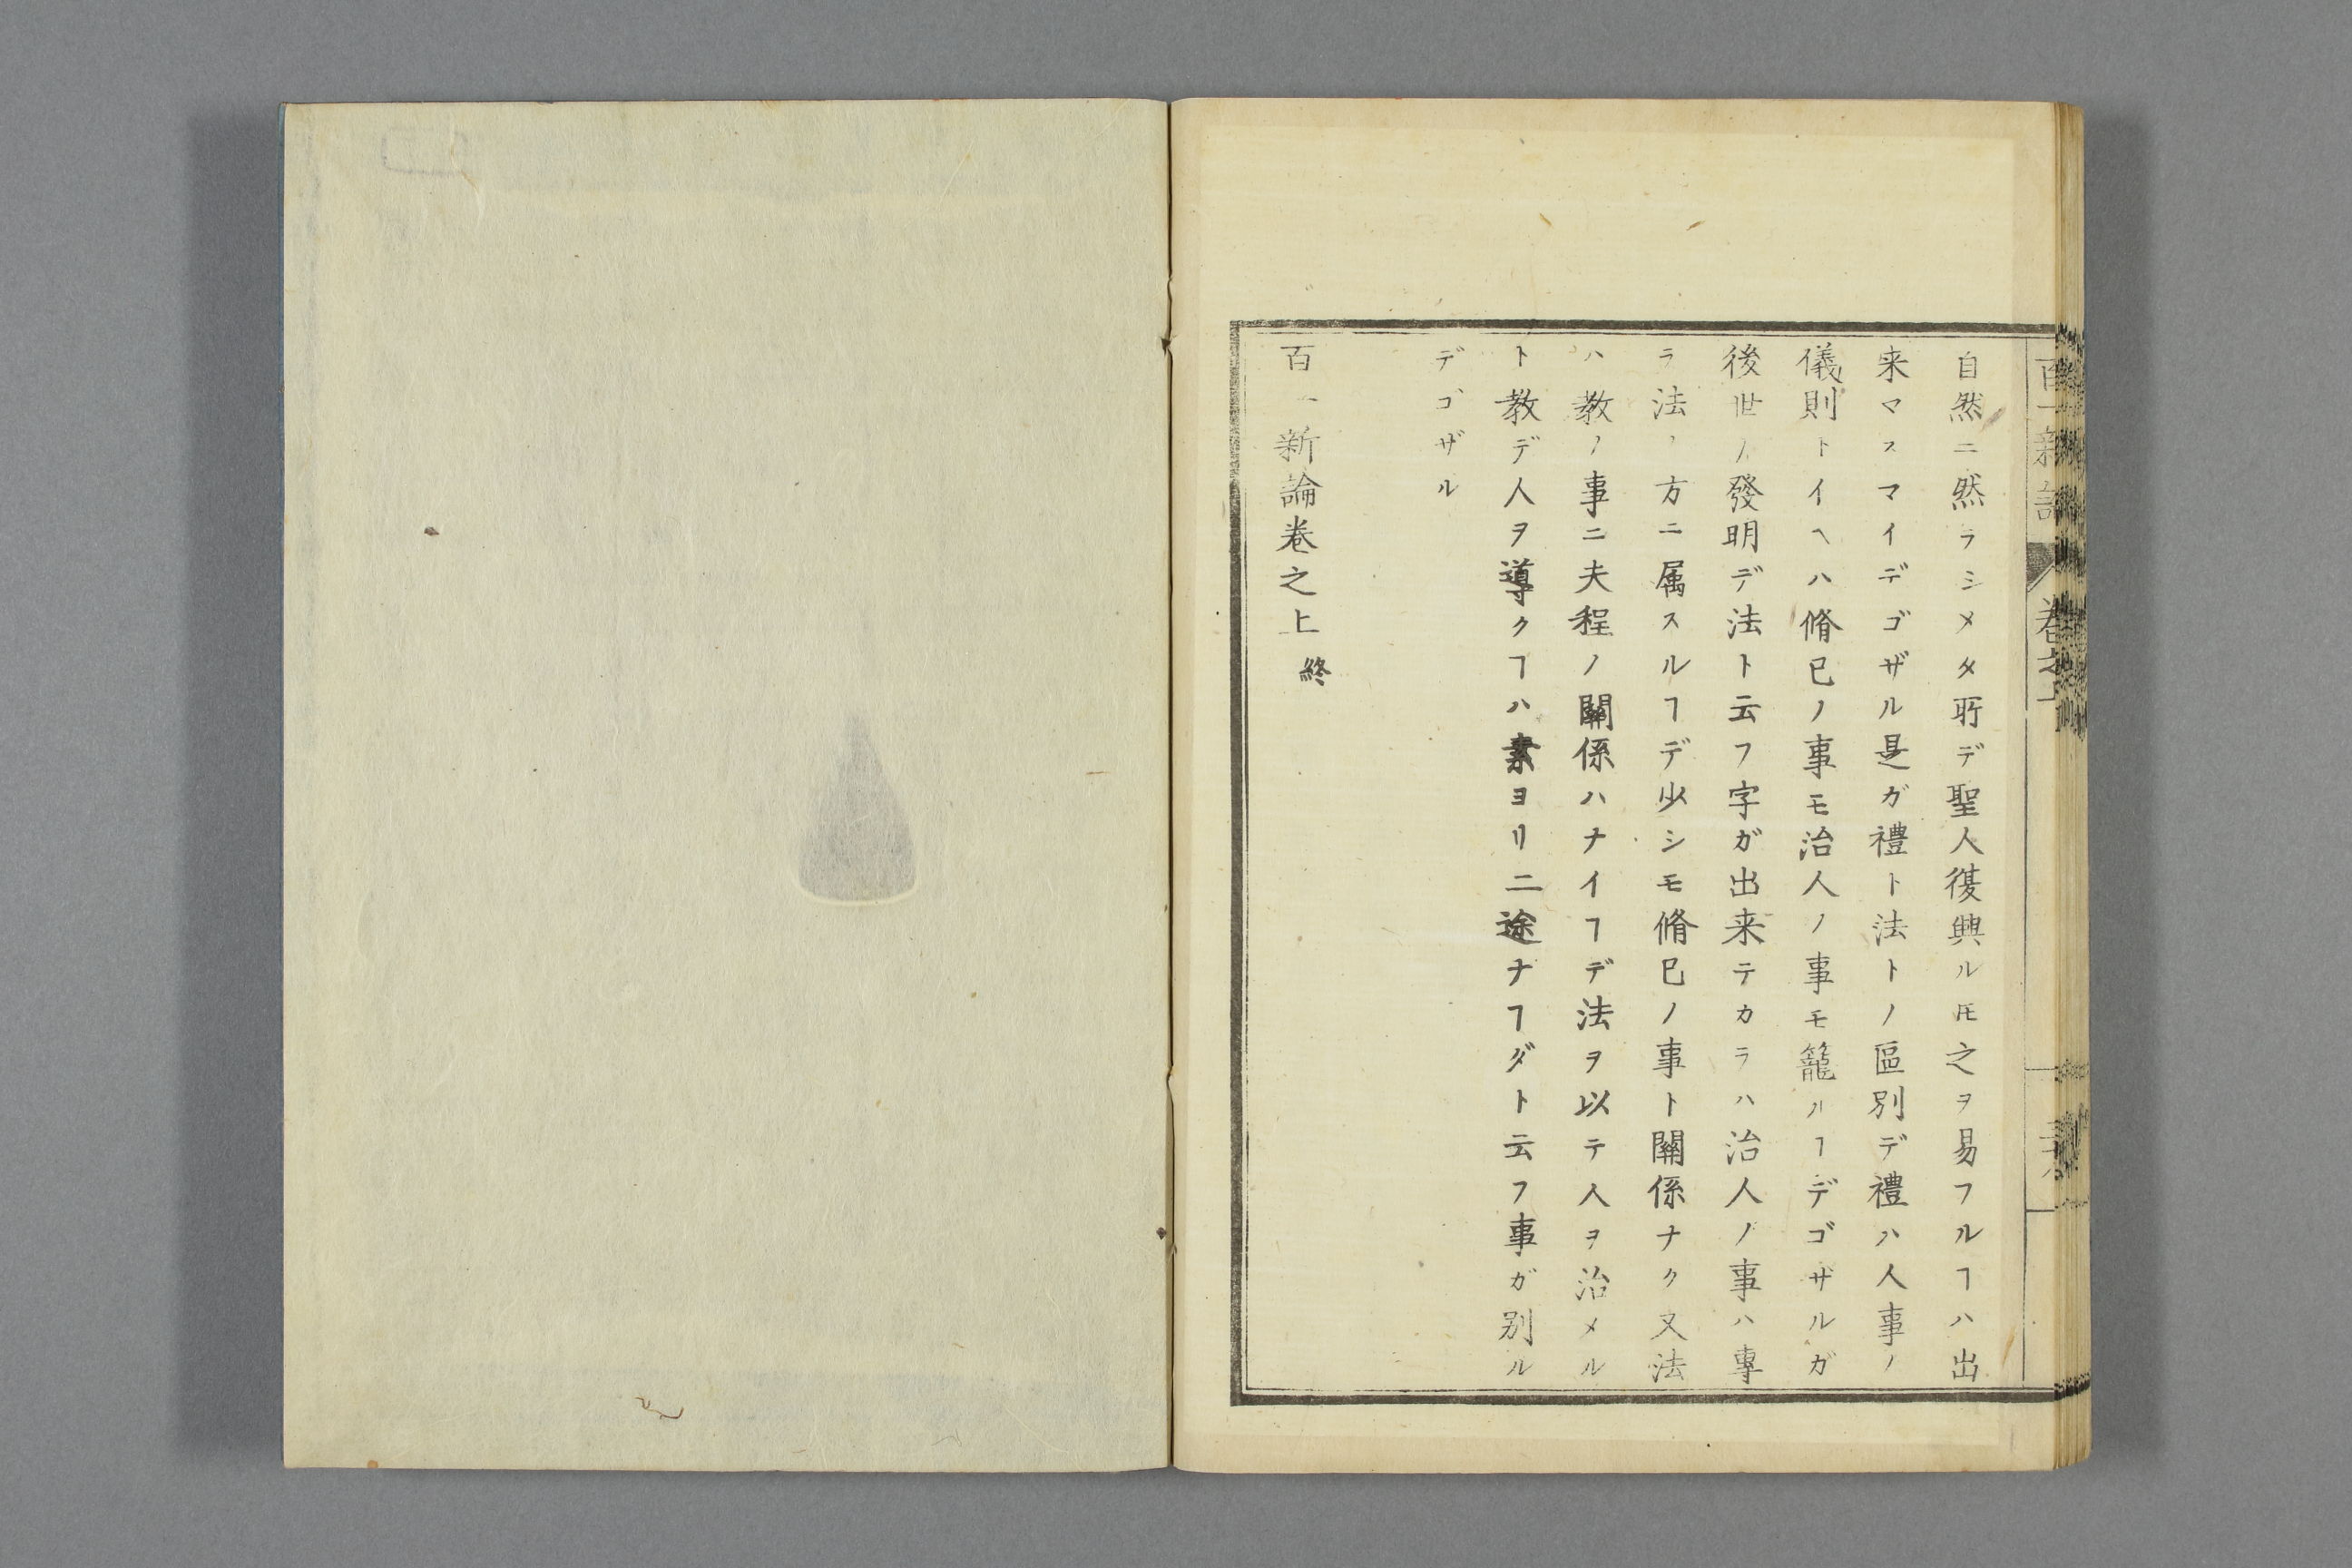 自然ニ然ラシメタ所デ聖人復興ルㇳモ之ヲ易フルヿハ出
来マスマイデゴザル是ガ禮ト法トノ區別デ禮ハ人事ノ
儀則トイヘハ脩已ノ事モ治人ノ事モ籠ルヿデゴザルガ
後世ノ發明デ法ト云フ字ガ出来テカラハ治人ノ事ハ專
ラ法ノ方ニ属スルヿデ少シモ脩已ノ事ト關係ナク又法
ハ教ノ事ニ夫程ノ關係ハナイヿデ法ヲ以テ人ヲ治メル
ト教デ人ヲ導クヿハ素ヨリ二途ナヿダト云フ事ガ別ル
デゴザル
百一新論巻之上終